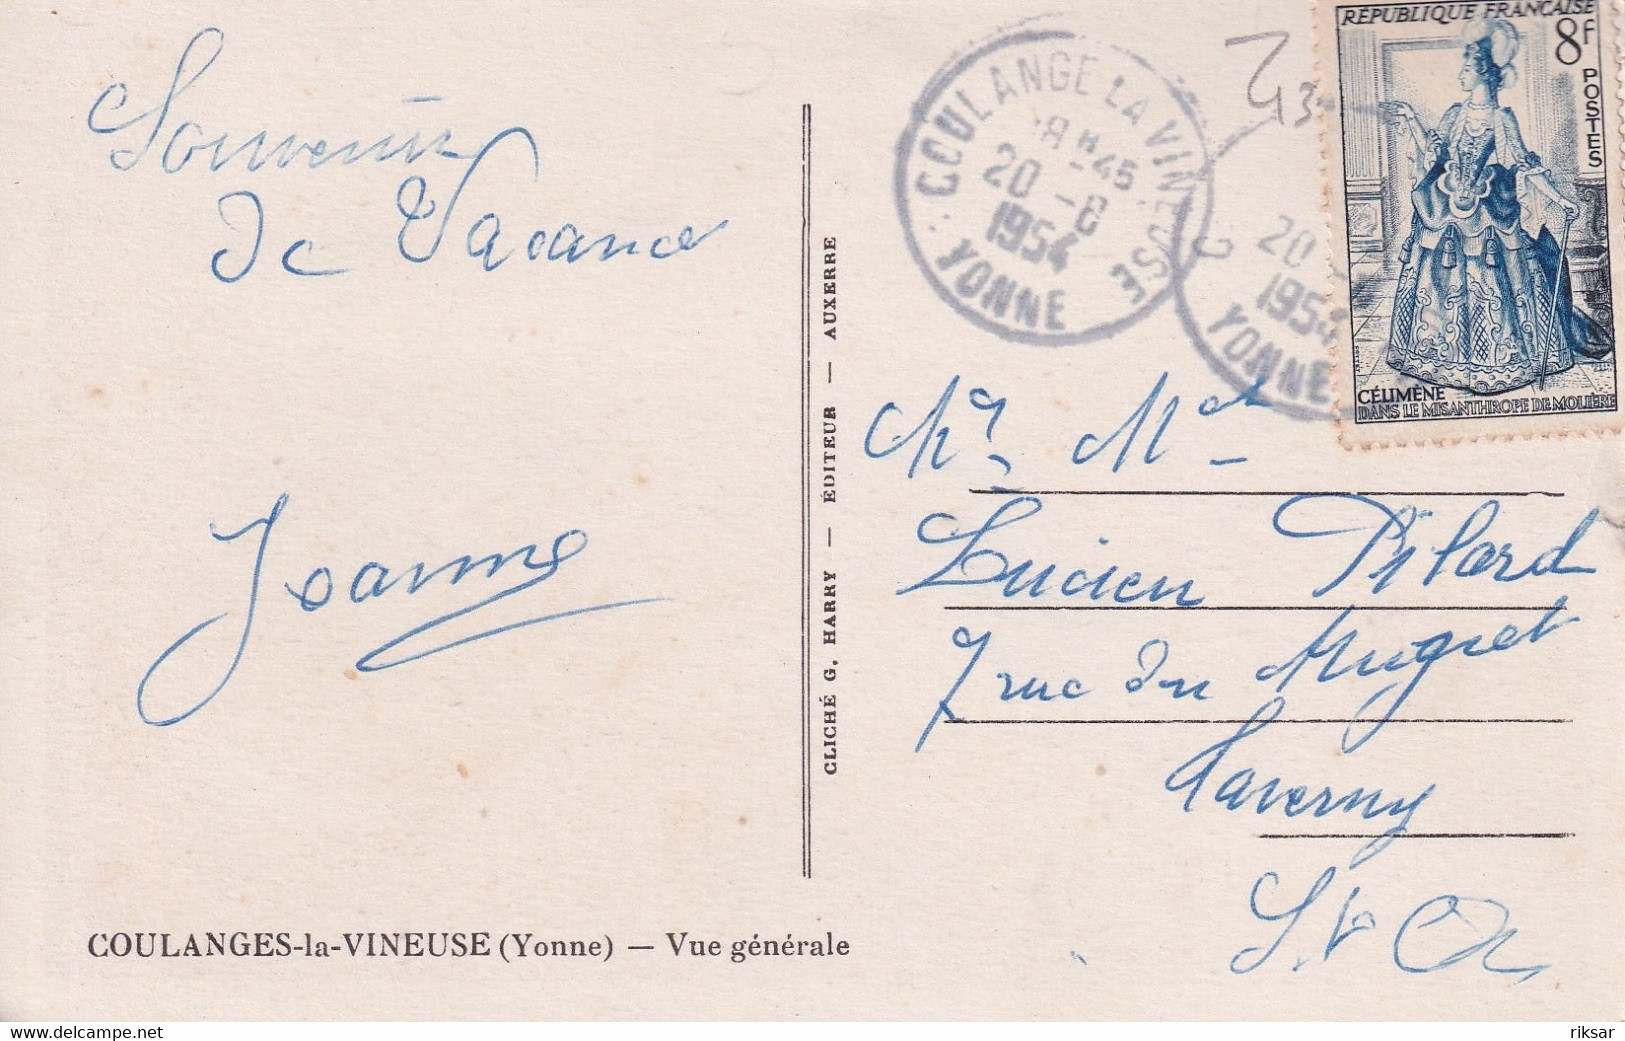 Souvenir
de Vacance
Jeanne
COULANGES-la-VINEUSE (Yonne) — Vue générale
CLICHÉ G. HARRY — ÉDITEUR — AUXERRE
COULANGE LA VINEUSE
18 H 45
20 - 8
1954
YONNE
20
1954
YONNE
RÉPUBLIQUE FRANÇAISE
8F
POSTES
CÉLIMÈNE
DANS LE MISANTHROPE DE MOLIÈRE
Mr Me
Lucien Pilard
7 rue du Muguet
Taverny
S et O
riksar